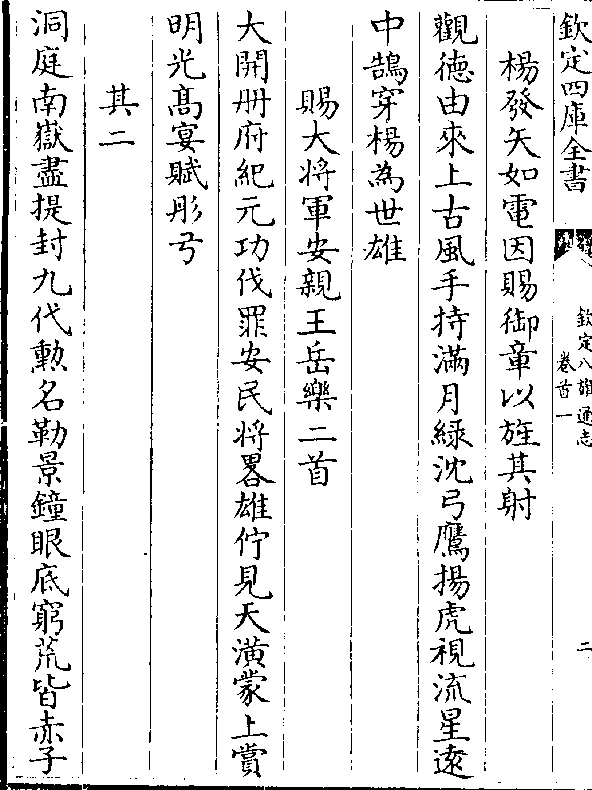 欽定四庫全書
欽定八旗通志
卷首一
二
楊發矢如電因賜御章以旌其射
觀徳由來上古風手持滿月緑沈弓鷹揚虎視流星逺
中鵠穿楊為世雄
賜大将軍安親王岳樂二首
大開冊府紀元功伐罪安民将畧雄佇見天潢蒙上賞
明光髙宴賦彤弓
其二
洞庭南嶽盡提封九代勲名勒景鐘眼底窮荒皆赤子